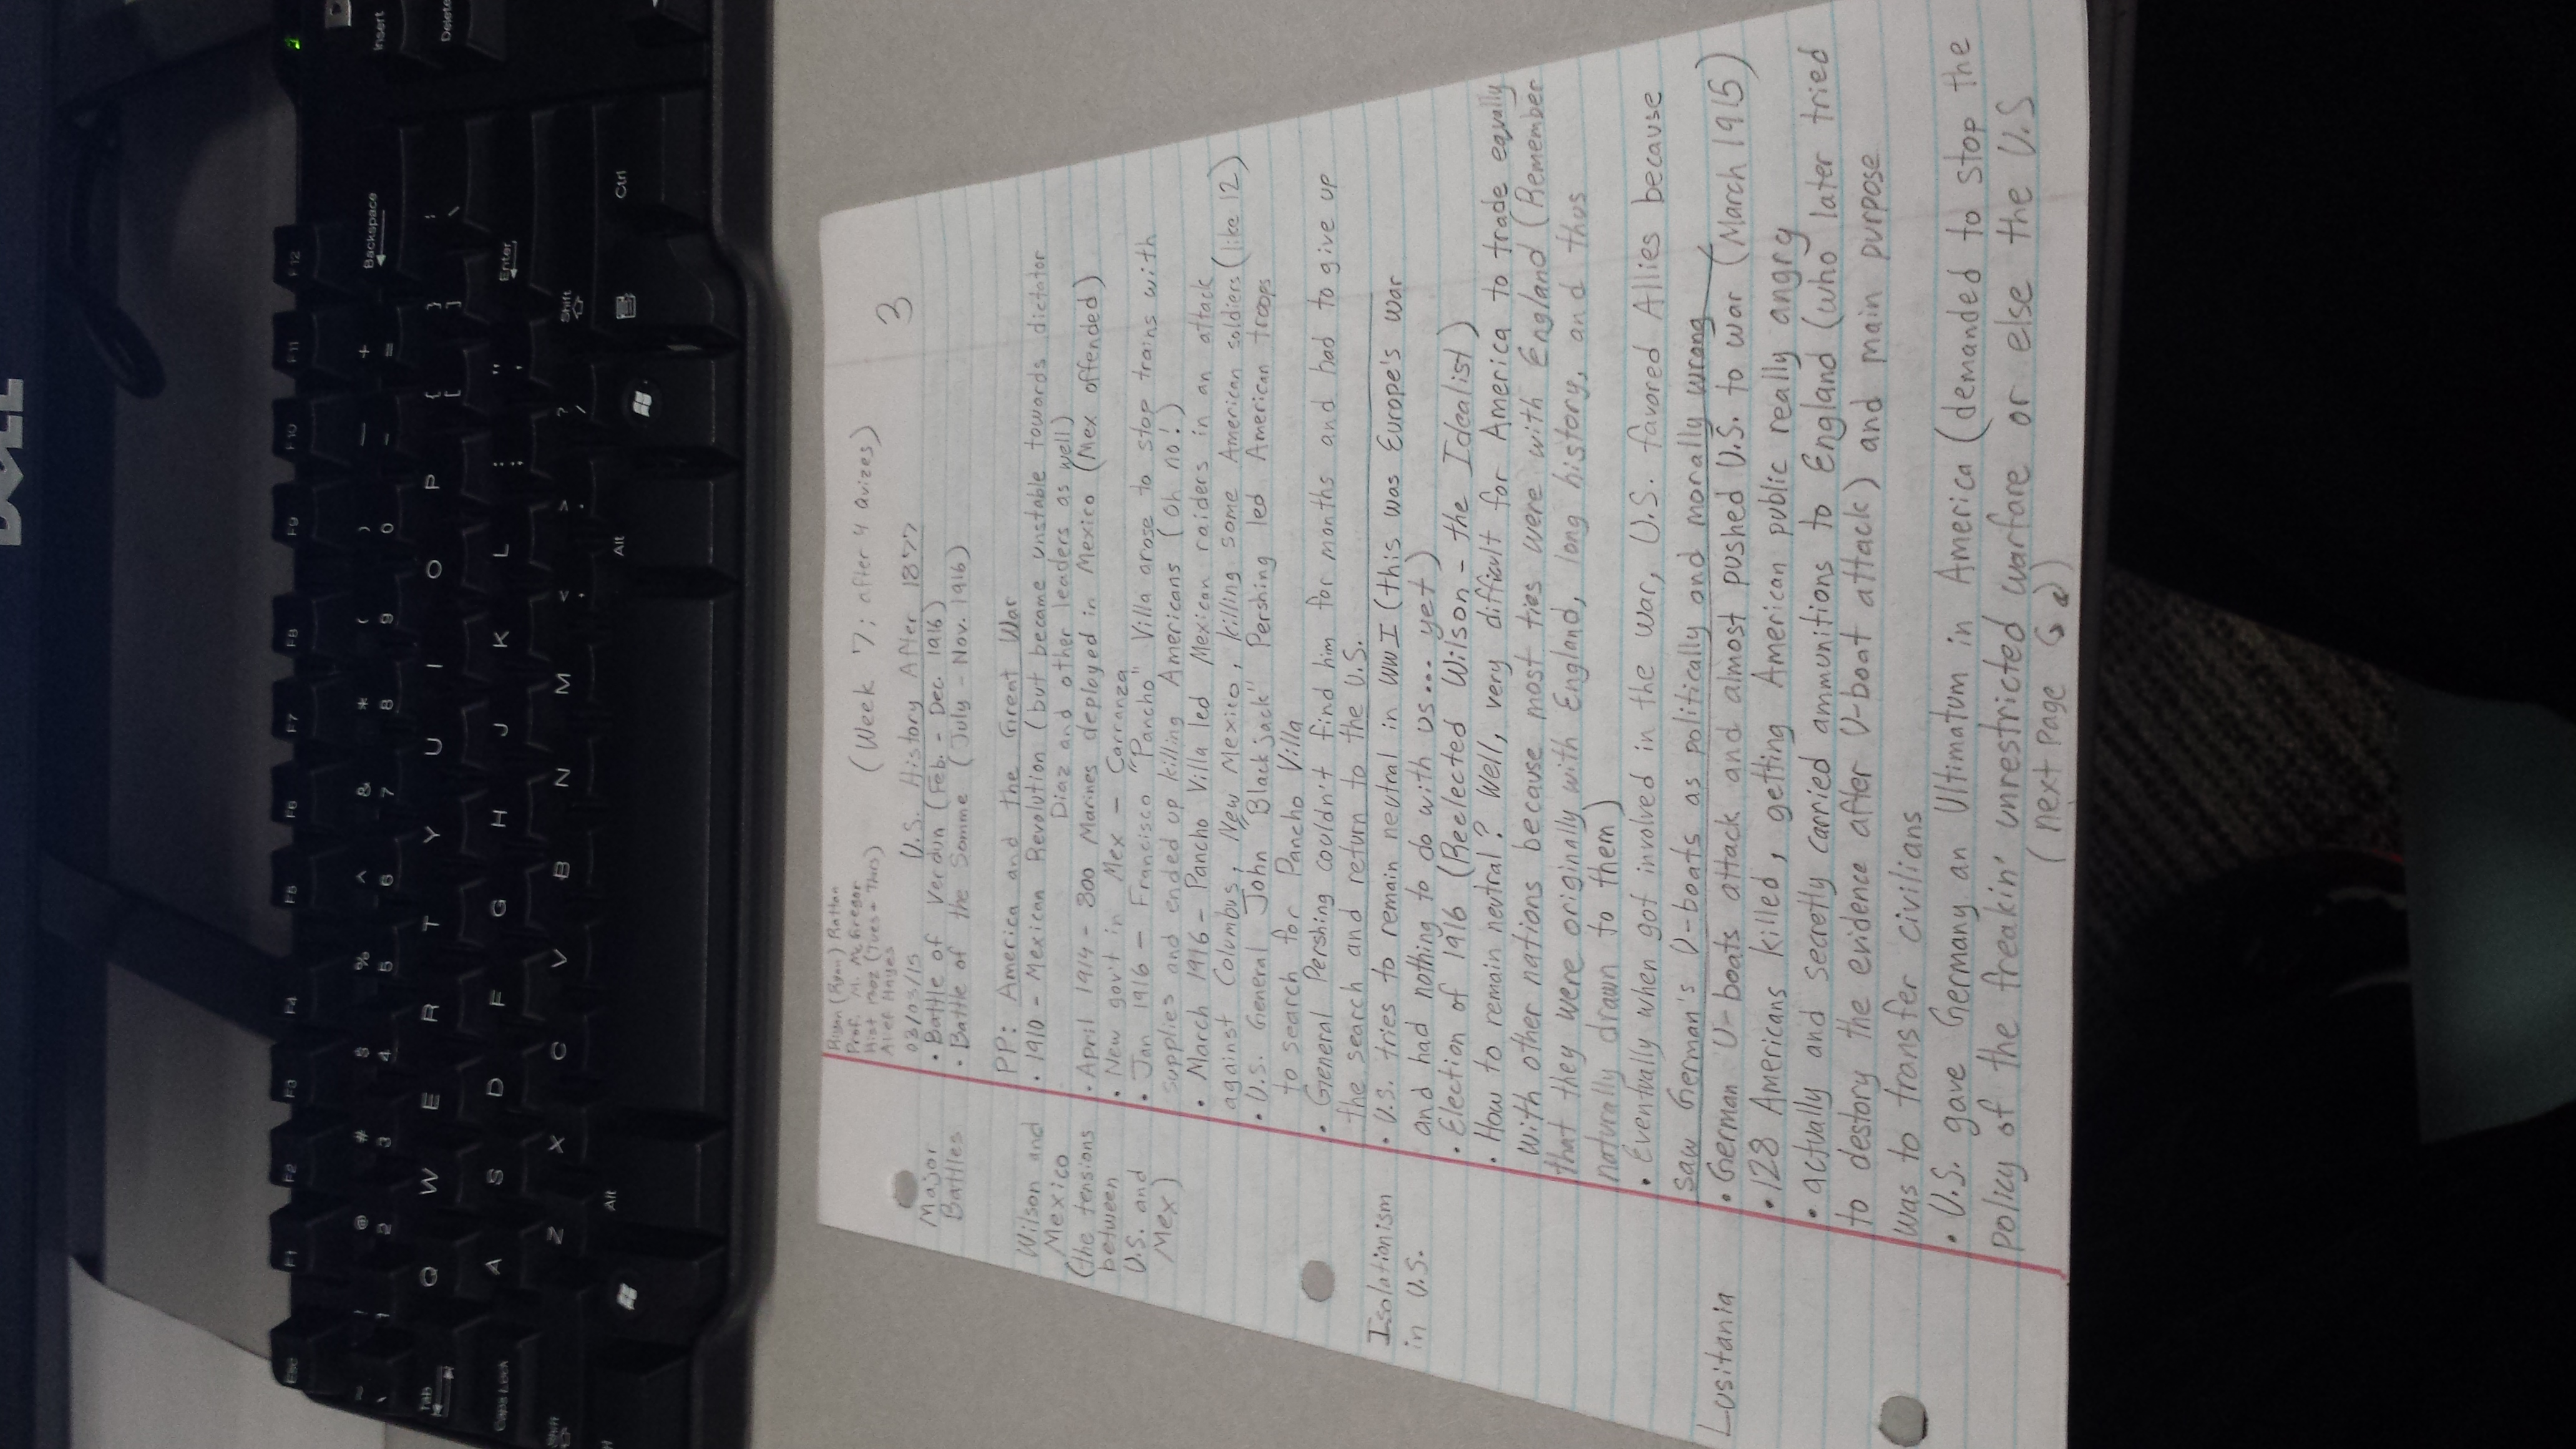 DELL
Insert
Delete
Esc F1 F2 F3 F4 F5 F6 F7 F8 F9 F10 F11 F12
~ ! @ # $ % ^ & * ( ) _ + Backspace
` 1 2 3 4 5 6 7 8 9 0 - =
Tab Q W E R T Y U I O P { } |
[ ] \
Caps Lock A S D F G H J K L : " Enter
; '
Shift Z X C V B N M < > ? Shift
, . /
Alt Alt Ctrl
3
Prof. M. McGregor
Alief Hayes
(Week 7; after 4 quizes)
03/03/15 U.S. History After 1877
Major
Battles
• Battle of Verdun (Feb. - Dec. 1916)
• Battle of the Somme (July - Nov. 1916)
PP: America and the Great War
Wilson and
Mexico
(the tensions
between
U.S. and
Mex)
• 1910 - Mexican Revolution (but became unstable towards dictator
Diaz and other leaders as well)
• April 1914 - 800 Marines deployed in Mexico (Mex offended)
• New gov't in Mex - Carranza
• Jan 1916 - Francisco "Pancho" Villa arose to stop trains with
supplies and ended up killing Americans (oh no!)
• March 1916 - Pancho Villa led Mexican raiders in an attack
against Columbus, New Mexico, killing some American soldiers (like 12)
• U.S. General John "Blackjack" Pershing led American troops
to search for Pancho Villa
• General Pershing couldn't find him for months and had to give up
the search and return to the U.S.
Isolationism
in U.S.
• U.S. tries to remain neutral in WWI (this was Europe's war
and had nothing to do with us... yet)
• Election of 1916 (Reelected Wilson - the Idealist)
• How to remain neutral? Well, very difficult for America to trade equally
with other nations because most ties were with England (Remember
that they were originally with England, long history, and thus
naturally drawn to them)
• Eventually when got involved in the war, U.S. favored Allies because
saw German's U-boats as politically and morally wrong
Lusitania
• German U-boats attack and almost pushed U.S. to war (March 1915)
• 128 Americans killed, getting American public really angry
• actually and secretly carried ammunitions to England (who later tried
to destory the evidence after U-boat attack) and main purpose
was to transfer civilians
• U.S. gave Germany an Ultimatum in America (demanded to stop the
policy of the freakin' unrestricted warfare or else the U.S
(next page